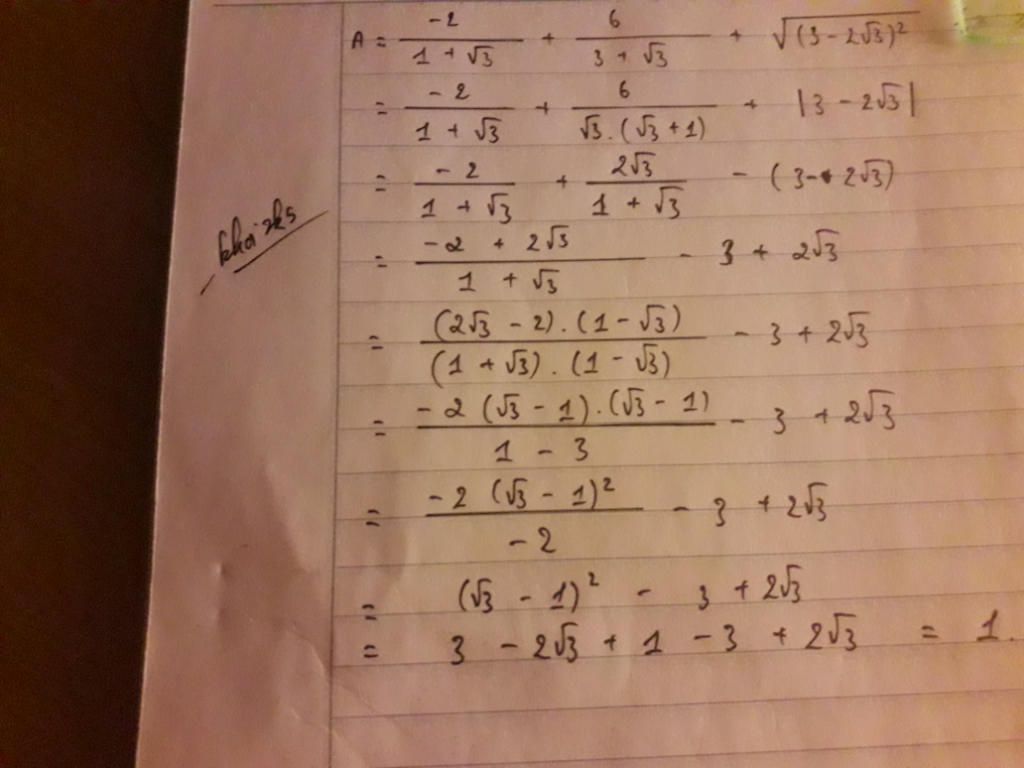 A = -2/(1 + √3) + 6/(3 + √3) + √((3 - 2√3)²)
= -2/(1 + √3) + 6/(√3 . (√3 + 1)) + |3 - 2√3|
= -2/(1 + √3) + 2√3/(1 + √3) - (3 - 2√3)
= (-2 + 2√3)/(1 + √3) - 3 + 2√3
= ((2√3 - 2) . (1 - √3))/((1 + √3) . (1 - √3)) - 3 + 2√3
= (-2 (√3 - 1) . (√3 - 1))/(1 - 3) - 3 + 2√3
= (-2 (√3 - 1)²)/(-2) - 3 + 2√3
= (√3 - 1)² - 3 + 2√3
= 3 - 2√3 + 1 - 3 + 2√3 = 1.